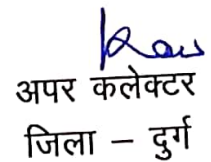 अपर कलेक्टर
जिला – दुर्ग